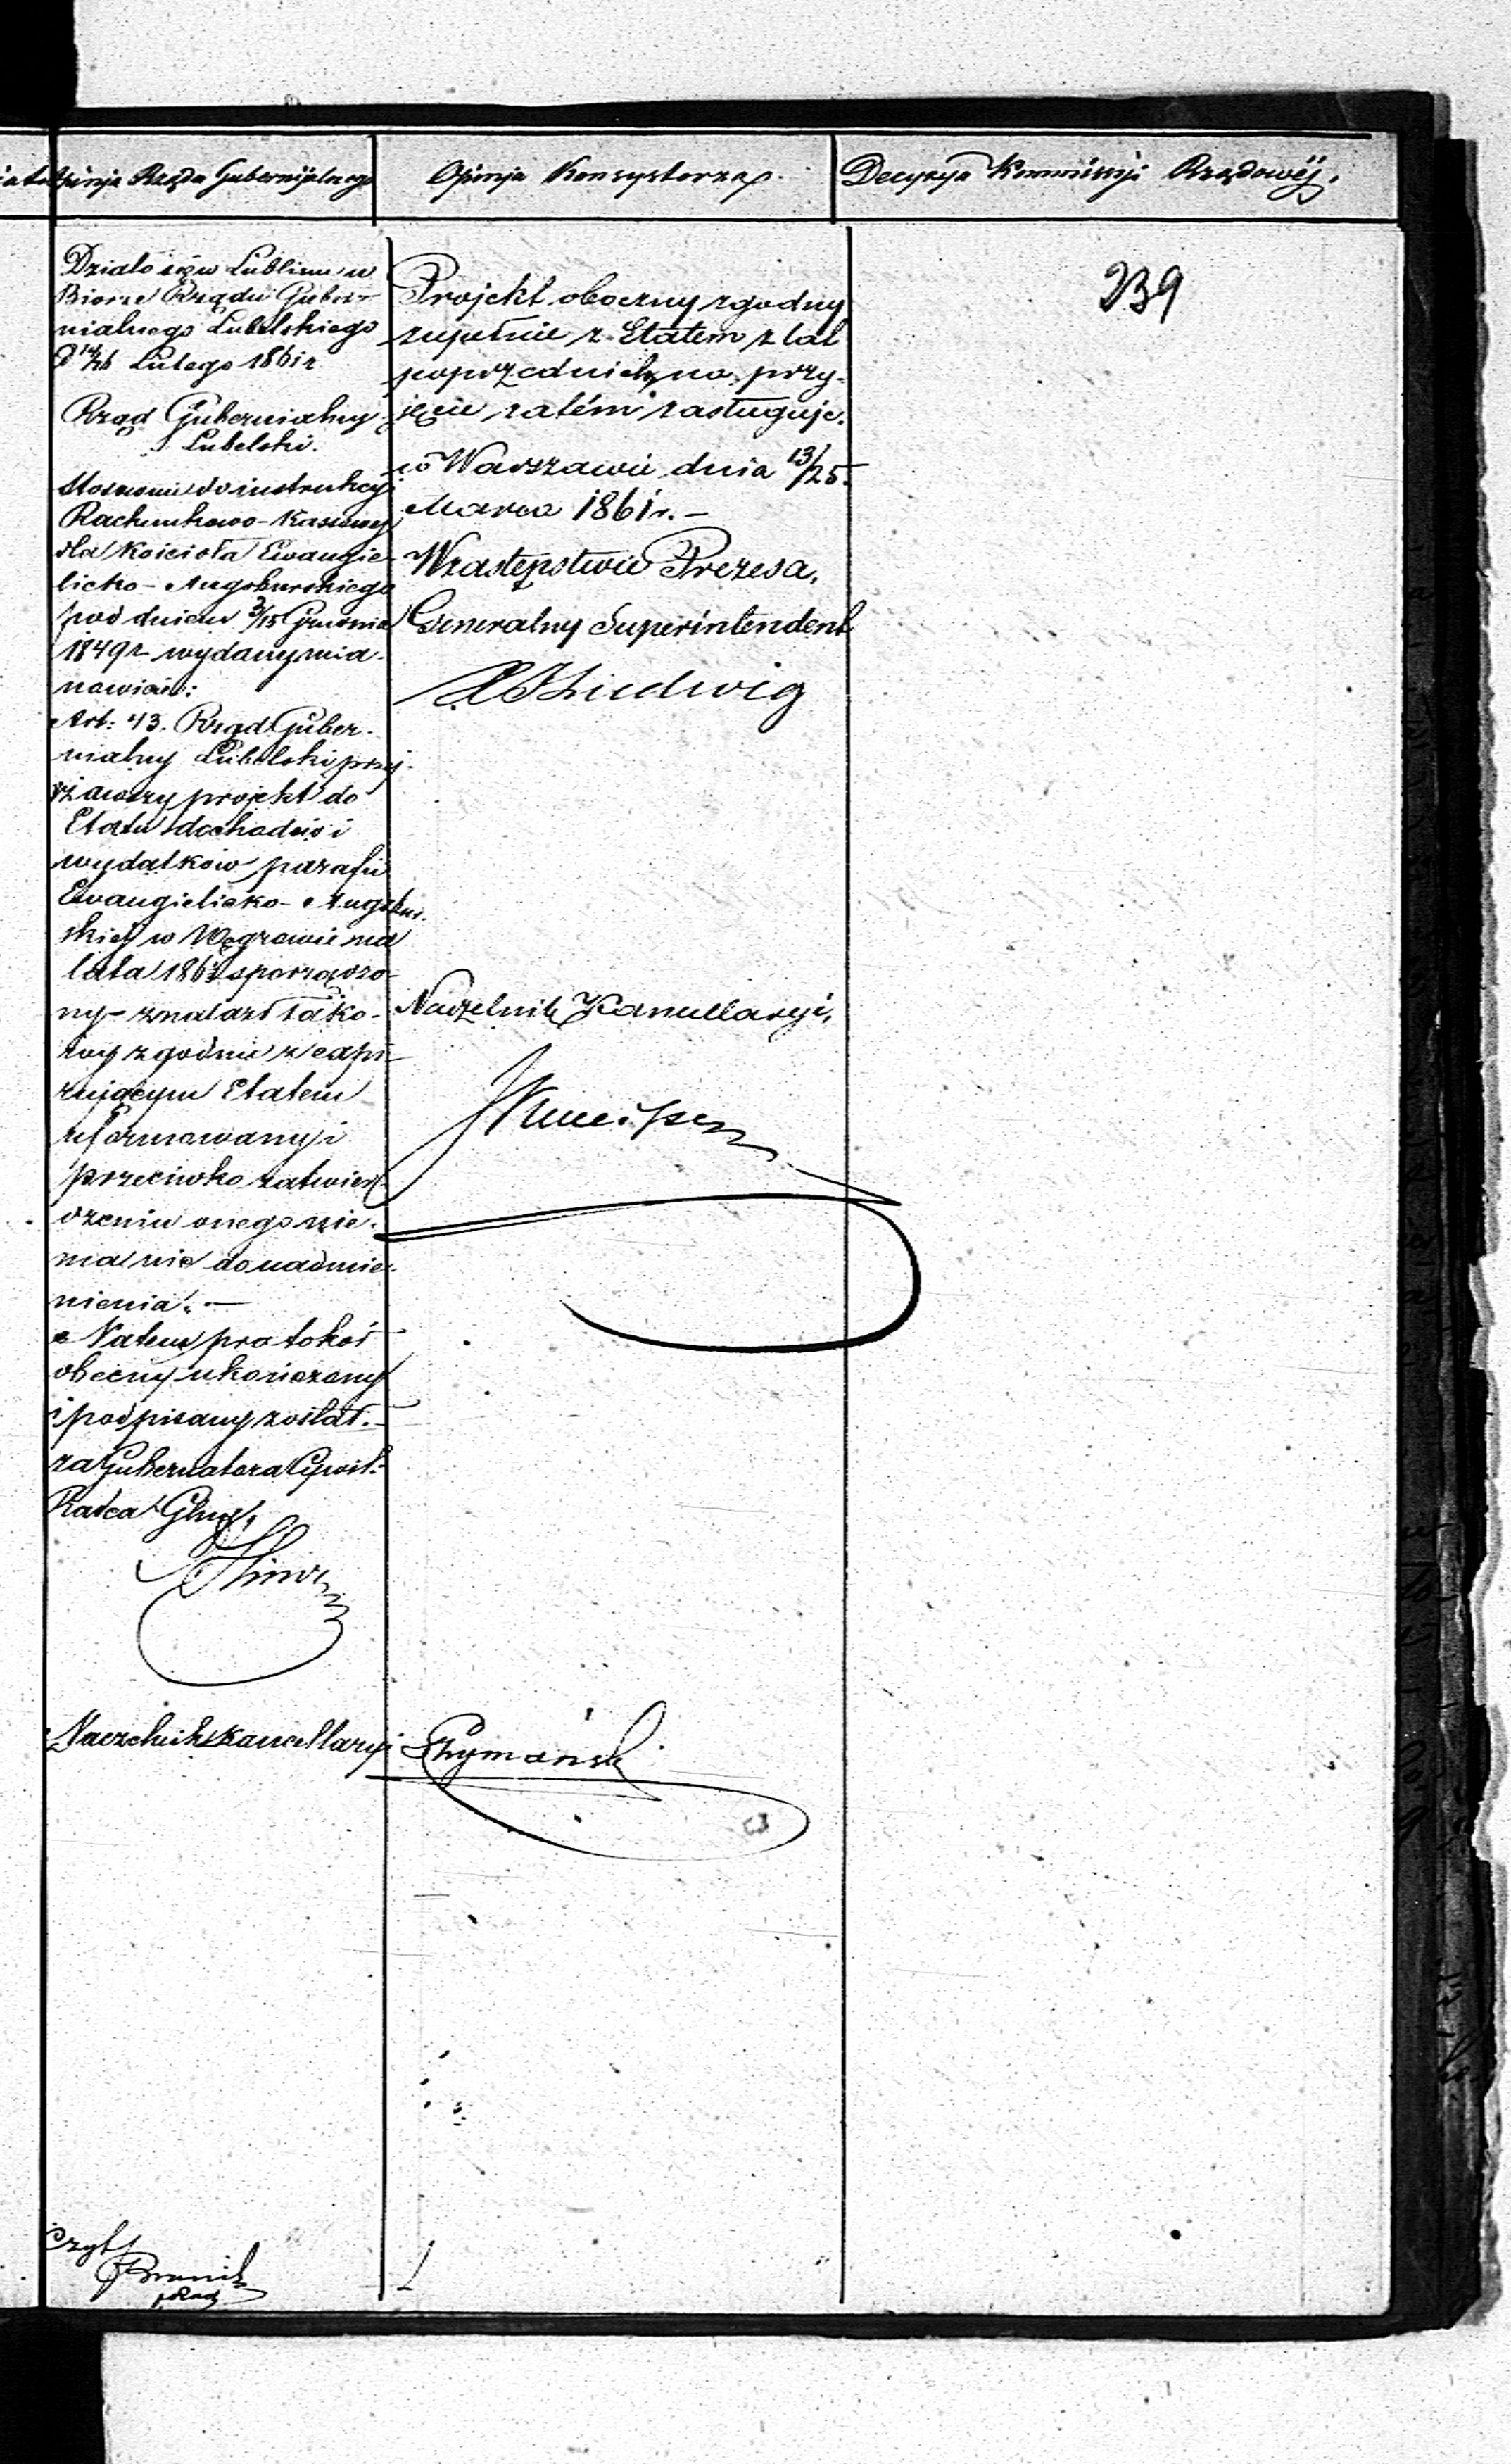 Opinja Rządu Gubernijalnego
Opinja Konsystorza.
Decyzya Kommissyi Rządowéj.
239
Działo się w Lublinie w
Biorze Rządu Guber-
nialnego Lubelskiego
d 14/26 Lutego 1861 r
Rząd Gubernialny
Lubelski.
Stosownie do instrukcyi
Rachunkowo-Kassowej
dla Kościoła Ewangie-
licko-Augsburskiego
pod dniem 3/15 Grudnia
1849 r wydanej mia-
nowicie:
Art: 43. Rząd Guber-
nialny Lubelski przej-
rzawszy projekt do
Etatu dochodów i
wydatków parafii
Ewangielicko-Augsbur-
skiej w Węgrowie na
lata 186 sporządzo-
ny - znalazł tako-
wy zgodnie z expi-
rującym Etatem
uformowany i
przeciwko zatwier-
dzeniu onego nie
ma nic do nadmie-
nienia. -
Na tem protokół
obecny ukończony
i podpisany został. -
za Gubernatora Cywil:
Radca
Naczelnik Kancellaryi
Szymański
Czyt
Projekt oboczny zgodny
zupełnie z Etatem z lat
poprzednich, na przy-
jęcie zatém zasługuje.
w Warszawie dnia 13/25
Marca 1861 r. -
W zastępstwie Prezesa,
Generalny Superintendent
Ludwig
Naczelnik Kancellaryi,